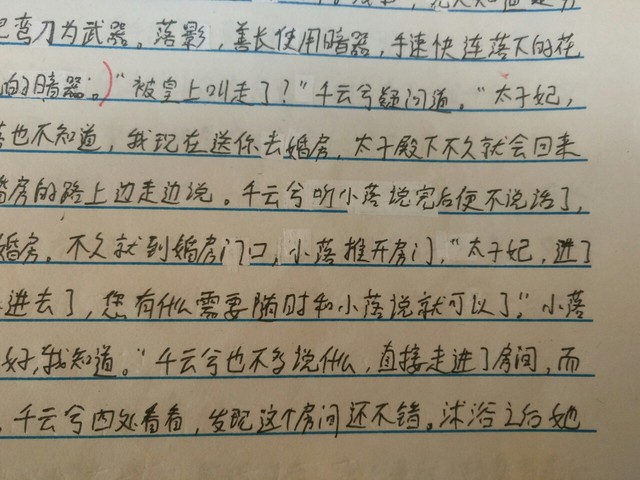 弯刀为武器。落影，善长使用暗器，手速快连落下的花
的暗器。）“被皇上叫走了？”千云兮疑问道。“太子妃，
落也不知道，我现在送你去婚房，太子殿下不久就会回来
婚房的路上边走边说。千云兮听小落说完后便不说话了，
婚房。不久就到婚房门口，小落推开房门，“太子妃，进了
进去了，您有什么需要随时和小落说就可以了”。小落
好，我知道。“千云兮也不多说什么，直接走进了房间，而
。千云兮四处看看，发现这个房间还不错。沐浴之后她